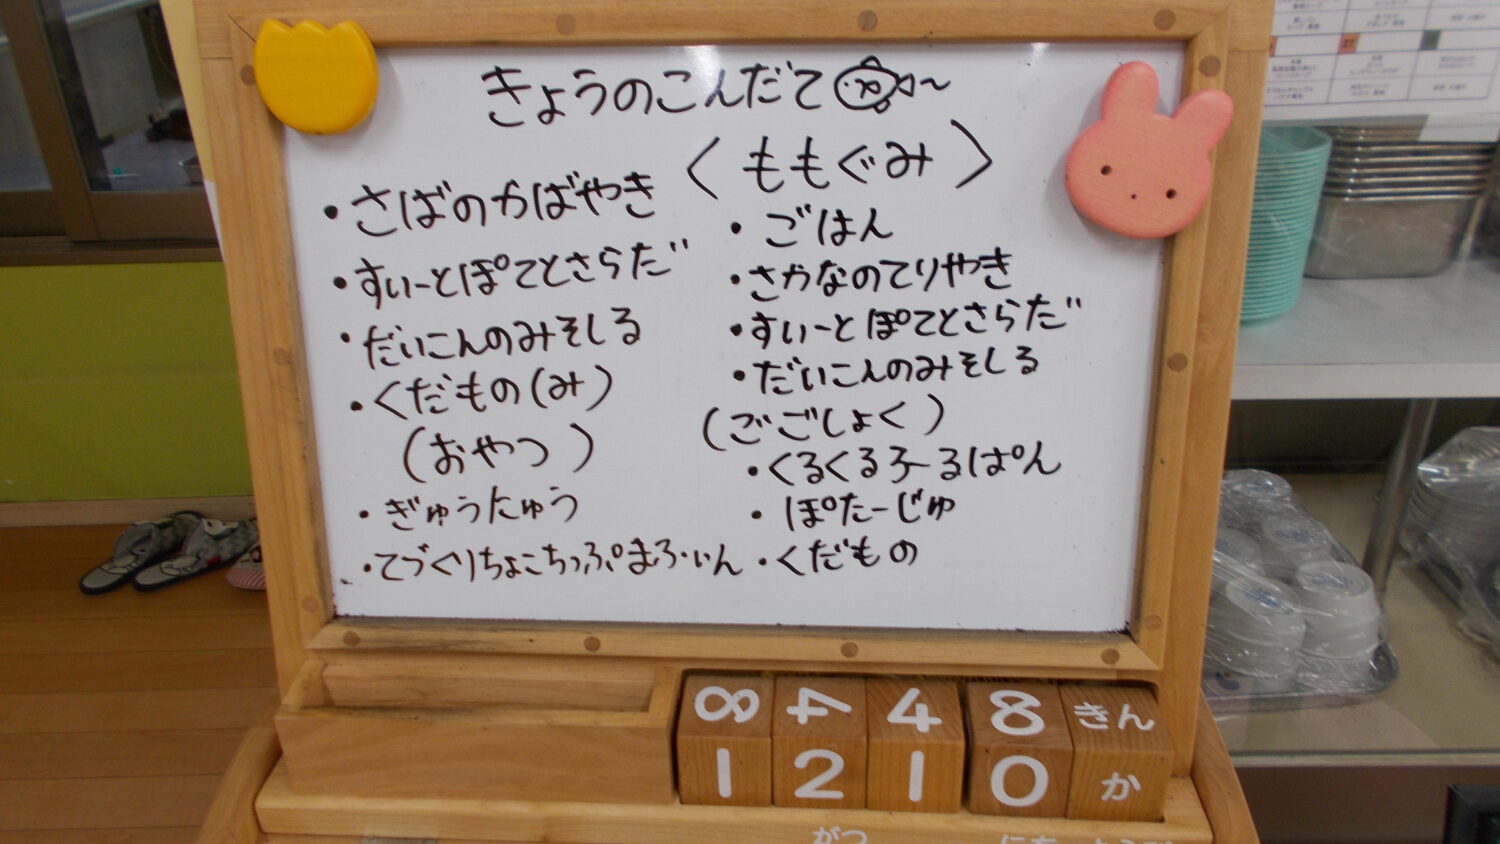 きょうのこんだて
・さばのかばやき
・すいーとぽてとさらだ
・だいこんのみそしる
・くだもの(み)
(おやつ)
・ぎゅうにゅう
・てづくりちょこちっぷまふぃん
〈ももぐみ〉
・ごはん
・さかなのてりやき
・すいーとぽてとさらだ
・だいこんのみそしる
(ごごしょく)
・くるくるろーるぱん
・ぽたーじゅ
・くだもの
8 4 4 8 きん
1 2 1 0 か
がつ